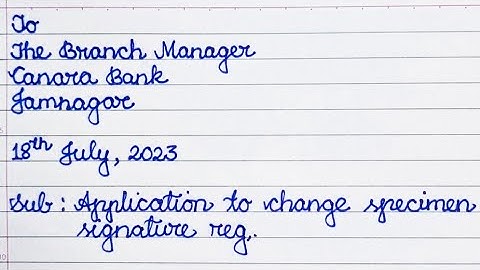 To
The Branch Manager
Canara Bank
Jamnagar
18th July, 2023
Sub : Application to change specimen
signature reg,.